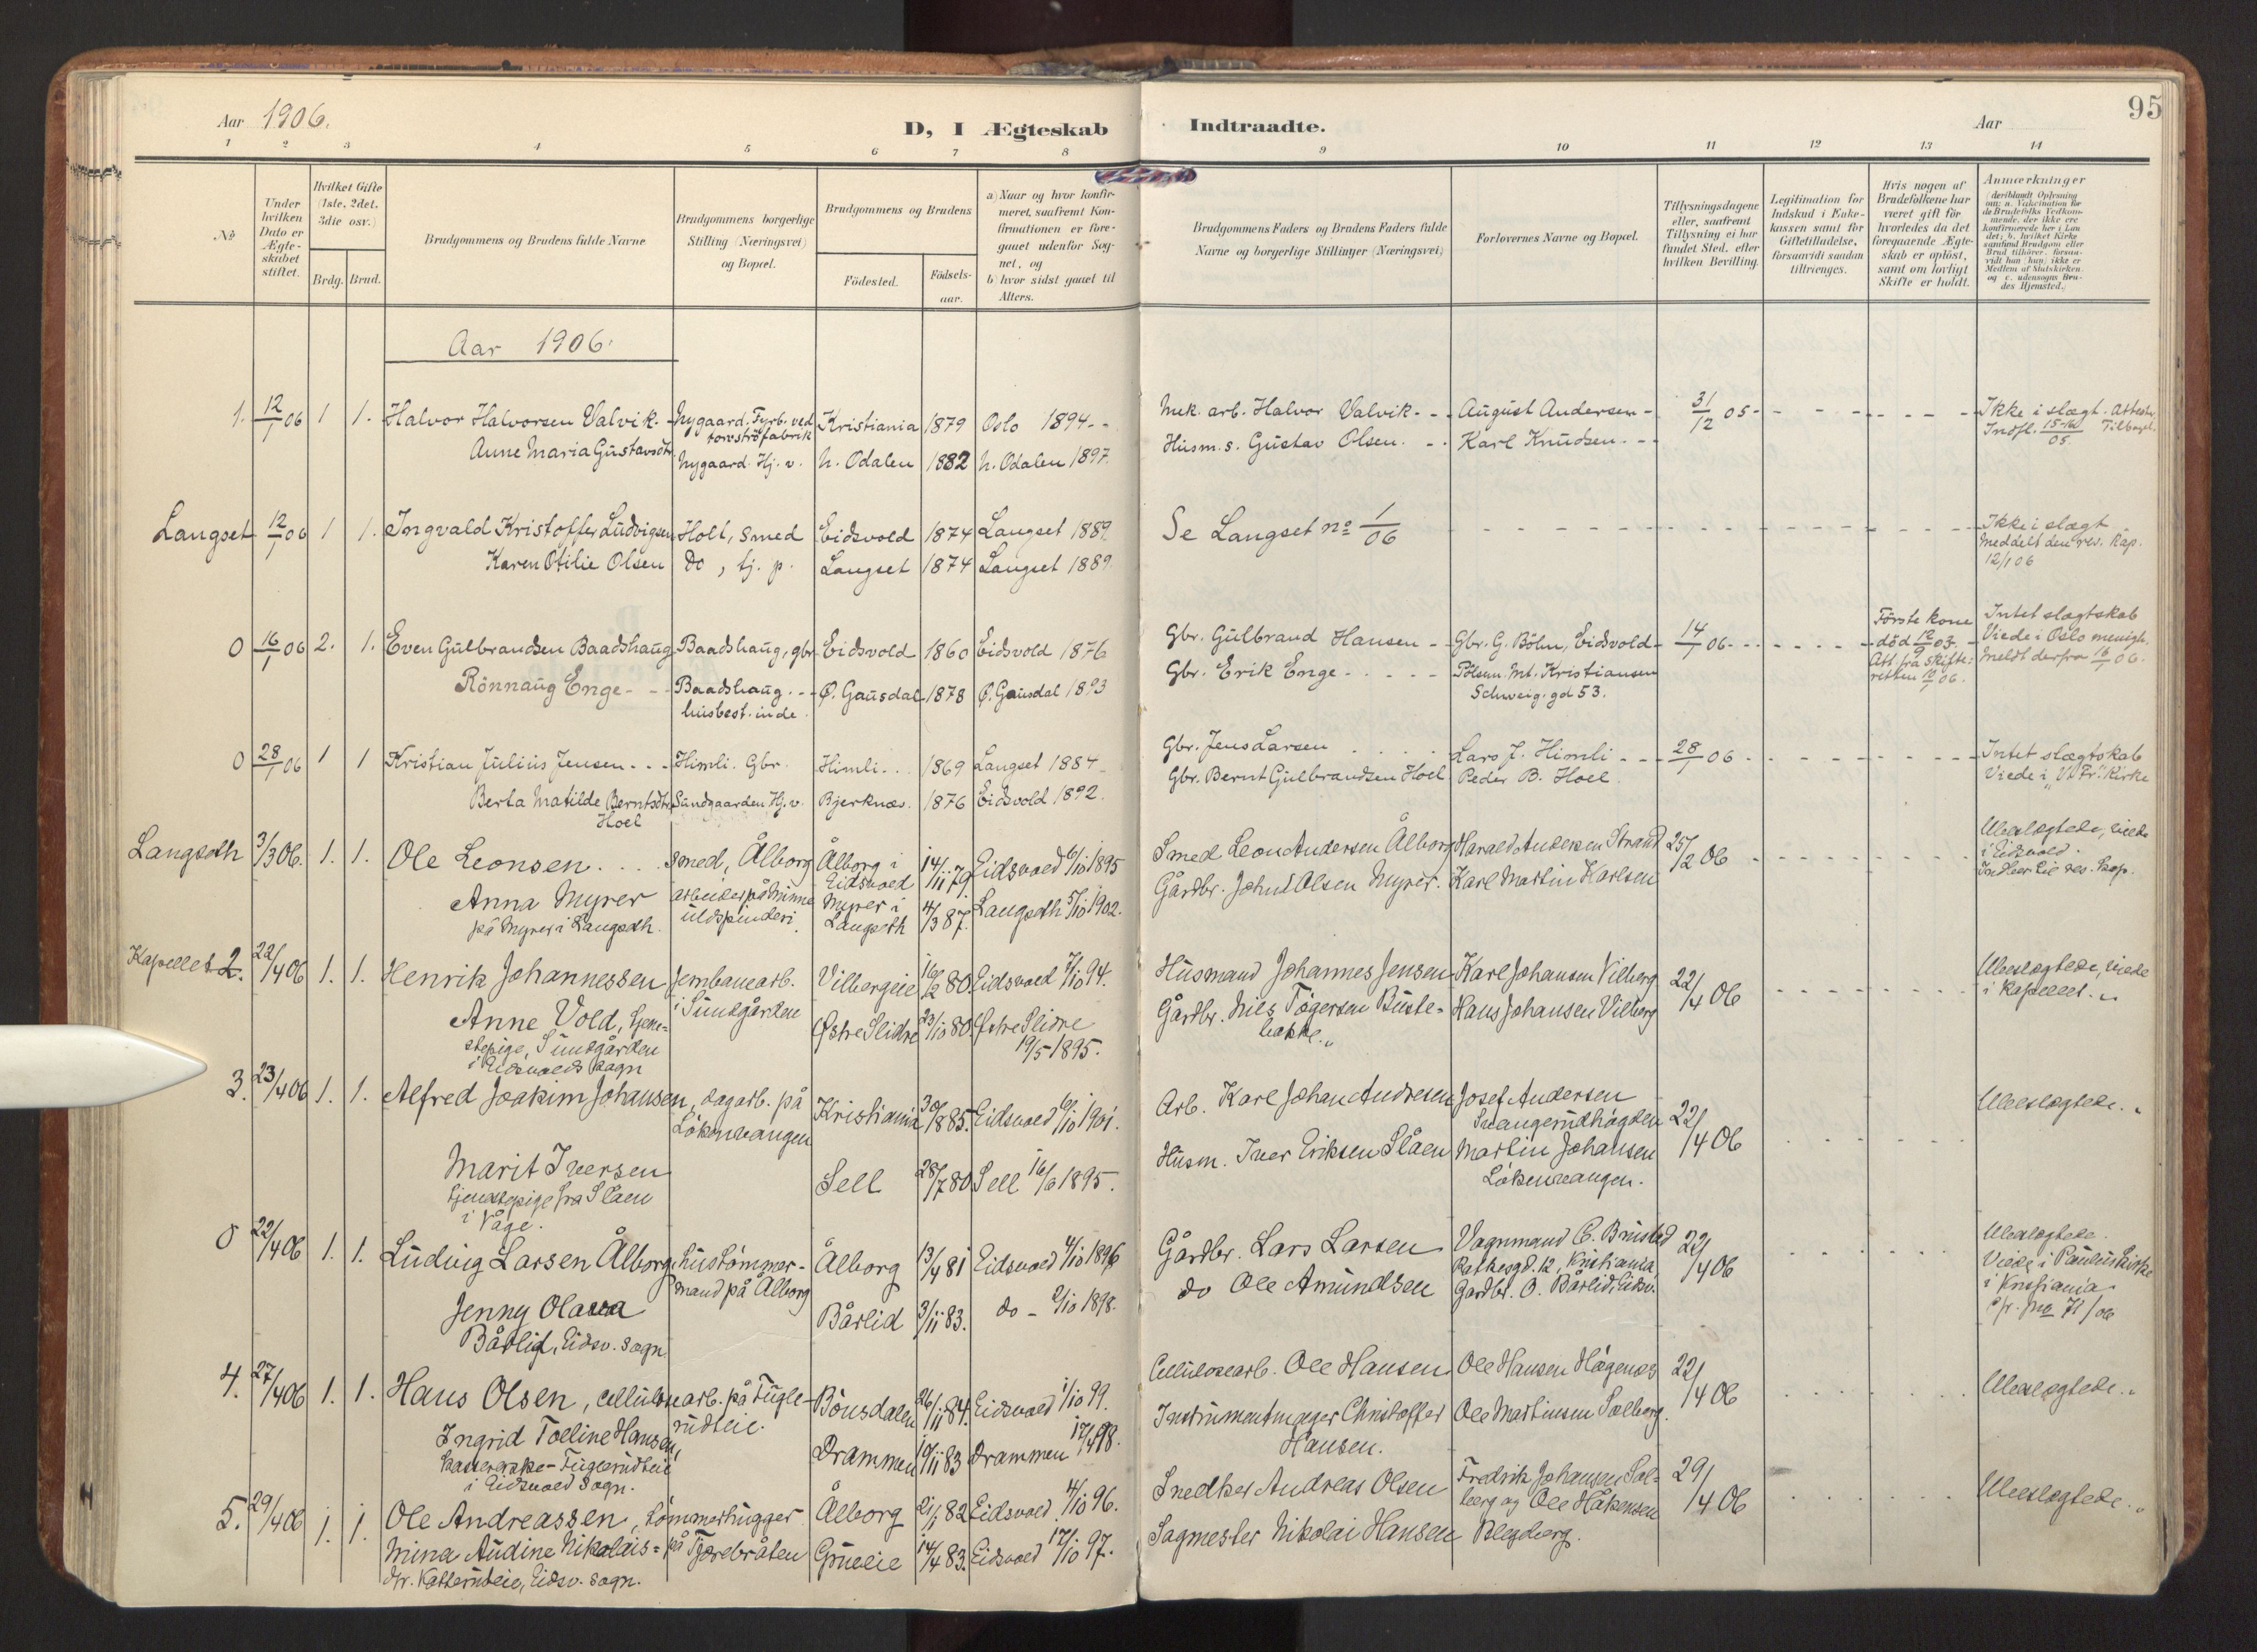 95
Aar 1906.
D, I Ægteskab Indtraadte.
Aar
1 2 3 4 5 6 7 8 9 10 11 12 13 14
No
Under hvilken Dato er Ægteskabet stiftet.
Hvilket Gifte (1ste, 2det, 3die osv.)
Brdg. Brud.
Brudgommens og Brudens fulde Navne
Brudgommens borgerlige Stilling (Næringsvei) og Bopæl.
Brudgommens og Brudens
Fødested. Fødselsaar.
a) Naar og hvor konfirmeret, saafremt Konfirmationen er foregaaet udenfor Sognet, og
b) hvor sidst gaaet til Alters.
Brudgommens Faders og Brudens Faders fulde Navne og borgerlige Stillinger (Næringsvei)
Forlovernes Navne og Bopæl.
Tillysningsdagene eller, saafremt Tillysning ei har fundet Sted, efter hvilken Bevilling.
Legitimation for Indskud i Enkekassen samt for Giftetilladelse, forsaavidt saadan tiltrænges.
Hvis nogen af Brudefolkene har været gift før hvorledes da det foregaaende Ægteskab er opløst, samt om lovligt Skifte er holdt.
Anmærkninger
Aar 1906.
1. 12/1 06 1 1. Halvor Halvorsen Valvik. Nygaard. Fyrb. ved torvströfabrik Kristiania 1879 Oslo 1894 Mek. arb. Halvor Valvik August Andersen 31/12 05 Ikke i slægt. Attester
Anne Maria Gustavsdtr. Nygaard. Hj. v. N. Odalen 1882 N. Odalen 1897. Husm. s. Gustav Olsen. Karl Knudsen
Langset 12/1 06 1 1. Ingvald Kristoffer Ludvigsen Holt, Smed Eidsvold 1874 Langset 1889. Se Langset no 1/06 Ikke i slægt
Karen Otilie Olsen Do, tj. p. Langset 1874 Langset 1889. Meddelt den res. Kap. 12/1 06
0 16/1 06 2. 1. Even Gulbrandsen Baadshaug Baadshaug, gbr. Eidsvold 1860 Eidsvold 1876 Gbr. Gulbrand Hansen Gbr. G. Böhn, Eidsvold 14/1 06 Förste kone död 12/9 03. Att. fra Skifteretten 10/1 06. Intet slægtskab
Rönnaug Enge Baadshaug. husbest.inde Ø. Gausdal 1878 Ø. Gausdal 1893 Gbr. Erik Enge Pölsem. Mt. Kristiansen Schweig. gd 53. Viede i Oslo menigh. Meldt derfra 16/1 06.
0 28/1 06 1 1 Kristian Julius Jensen Himli. Gbr. Himli 1869 Langset 1884 Gbr. Jens Larsen Lars J. Himli 28/1 06 Intet slægtskab
Berta Matilde Berntsdtr. Hoel Sundgaarden Hj. v. Bjerknæs. 1876 Eidsvold 1892. Gbr. Bernt Gulbrandsen Hoel Peder B. Hoel Viede i V. Fr. Kirke
Langseth 3/3 06. 1. 1. Ole Leonsen. Smed, Ålborg Ålborg i Eidsvold 14/11 79. Eidsvold 6/10 1895 Smed Leon Andersen Ålborg Harald Andersen Strand 25/2 06 Ubeslægtede, viede i Eidsvold.
Anna Myrer på Myrer i Langseth. arbeider på Minne uldspinderi. Myrer i Langseth 4/3 87. Langseth 5/10 1902. Gårdbr. Johnt Olsen Myrer. Karl Martin Karlsen
Kapellet 2. 22/4 06 1. 1. Henrik Johannessen Jernbanearb. i Sundgården Vilbergeie 16/2 80. Eidsvold 7/10 94. Husmand Johannes Jensen Karl Johansen Vilberg 22/4 06 Ubeslægtede, viede i Kapellet.
Anne Vold, tjenestepige, Sundgården i Eidsvolds sogn Østre Slidre 23/10 80. Østre Slidre 19/5 1895. Gårdbr. Nils Tögersen Bustebakke. Hans Johansen Vilberg
3. 23/4 06 1. 1. Alfred Joakim Johansen, dagarb. på Lökenvangen Kristiania 30/8 85. Eidsvold 6/10 1901. Arb. Karl Johan Andresen Josef Andersen Svangerudhögden 22/4 06 Ubeslægtede.
Marit Iversen tjenestepige fra Slåen i Våge. Sell 28/7 80. Sell 16/6 1895. Husm. Iver Eriksen Slåen Martin Johansen Lökenvangen.
0 22/4 06 1. 1. Ludvig Larsen Ålborg, hustömmermand på Ålborg Ålborg 13/4 81 Eidsvold 4/10 1896 Gårdbr. Lars Larsen Vognmand C. Brusted Rathesgd. 12, Kristiania 22/4 06 Ubeslægtede.
Jenny Olava Bårlid, Eidsv. sogn. Bårlid 3/11 83. do - 2/10 1898. do Ole Amundsen Gardbr. O. Bårlid, Eidsv. Viede i Paulus Kirke i Kristiania
4. 27/4 06 1. 1. Hans Olsen, cellulosearb. på Fuglerudteie. Bönsdalen 26/11 84. Eidsvold 1/10 99. Cellulosearb. Ole Hansen Ole Hansen Högenæs 22/4 06 Ubeslægtede.
Ingrid Toeline Hansen, Fuglerudteie i Eidsvold Sogn. Drammen 10/11 83 Drammen 17/4 98. Instrumentmager Christoffer Hansen. Ole Martinsen Solberg.
5. 29/4 06 1. 1. Ole Andreassen, tömmerhugger på Tjærebråten Ålborg 21/1 82 Eidsvold 4/10 96. Snedker Andreas Olsen Fredrik Johansen Solberg og Ole Håkensen Blegberg. 29/4 06 Ubeslægtede.
Mina Audine Nikolaisdtr. Katterudeie, Eidsv. sogn. Grueeie 14/4 83. Eidsvold 17/10 97. Sagmester Nikolai Hansen